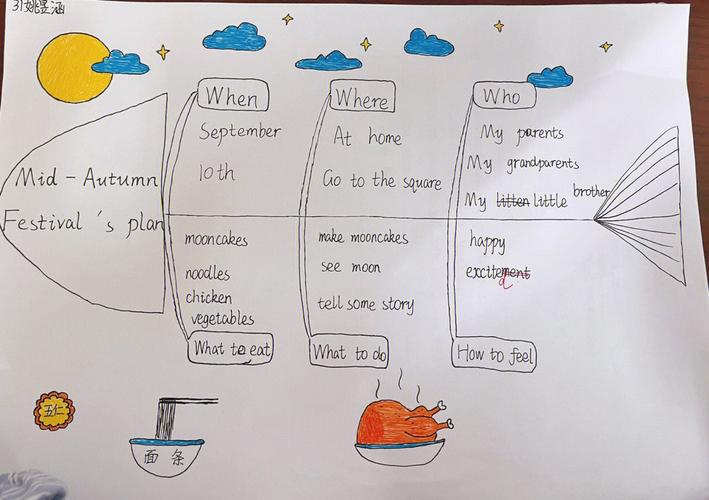 31姚昱涵
When
Where
Who
September
10th
At home
Go to the square
My parents
My grandparents
My litten little brother
Mid-Autumn
Festival's plan
mooncakes
noodles
chicken
vegetables
What to eat
make mooncakes
see moon
tell some story
What to do
happy
excitement
d
How to feel
五仁
面条